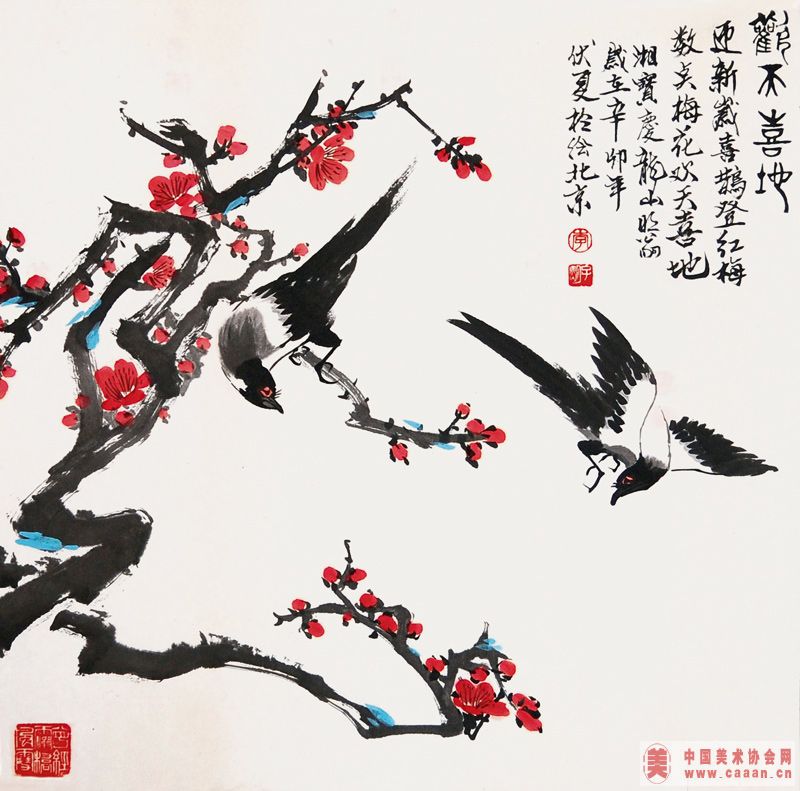 歡天喜地
迎新歲喜鵲登红梅
数点梅花欢天喜地
湘寶慶龍山
歲在辛卯年
伏夏於绘北京
李
美 中国美术协会网
www.caaan.cn